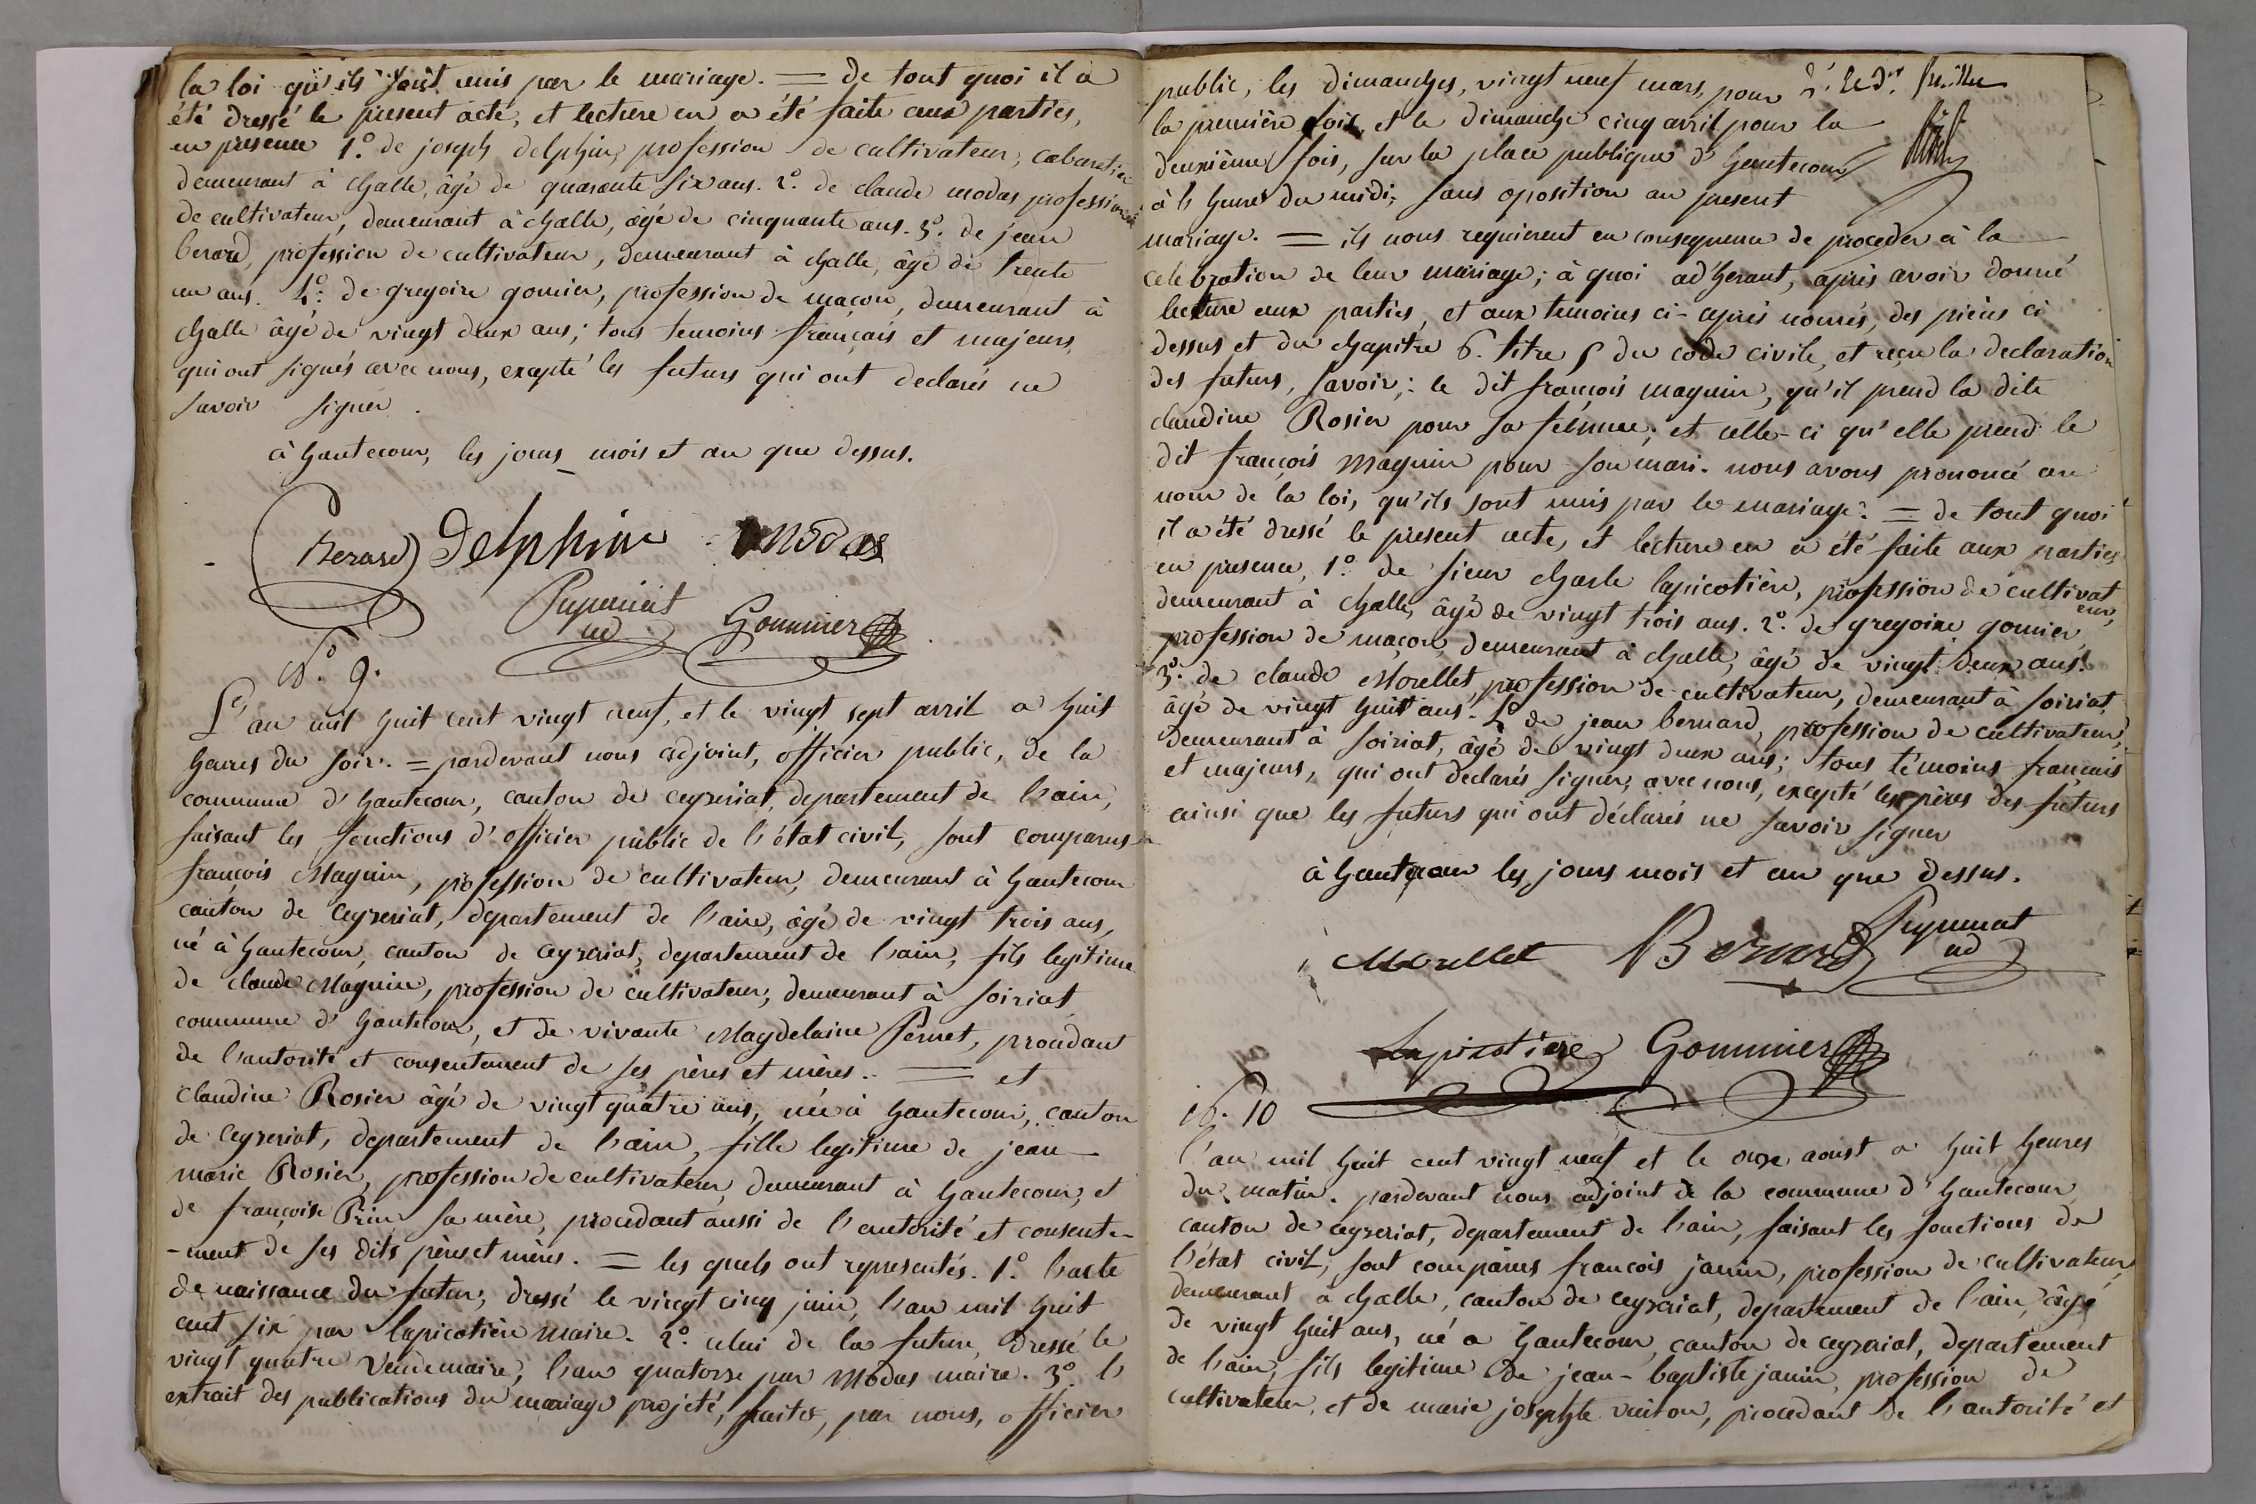 la loi qu'ils sont unis par le mariage. = de tout quoi il a
été dressé le present acte, et lecture en a été faite aux parties,
en presence 1.° de joseph delphin, profession de cultivateur, cabaretier
demeurant à challe, âgé de quarante six ans. 2.° de claude modas profession
de cultivateur, demeurant à challe, âgé de cinquante ans. 3.° de jean
berard, profession de cultivateur, demeurant à challe, âgé de trente
un ans. 4.° de gregoire gomier, profession de maçon, demeurant à
challe âgé de vingt deux ans; tous temoins français et majeurs,
qui ont signés avec nous, excepté les futurs qui ont declarés ne
savoir signer.
à hautecour, les jours mois et an que dessus.
Berard Delphin modas
Puyminat Gommier
ad
N.° 9.
L'an mil huit cent vingt neuf, et le vingt sept avril a huit
heures du soir. = pardevant nous adjoint, officier public, de la
commune d'hautecour, canton de ceyzeriat, departement de l'ain,
faisant les fonctions d'officier public de l'état civil, sont comparus
françois Maguin, profession de cultivateur, demeurant à hautecour
canton de ceyzeriat, departement de l'ain, âgé de vingt trois ans,
né à hautecour, canton de ceyzeriat, departement de l'ain, fils legitime
de claude Maguin, profession de cultivateur, demeurant à soiriat,
commune d'hautecour, et de vivante Magdelaine Pernet, procedant
de l'autorité et consentement de ses pères et mères. = et
claudine Rosier âgé de vingt quatre ans, née à hautecour, canton
de ceyzeriat, departement de l'ain, fille legitime de jean
marie Rosier, profession de cultivateur demeurant à hautecour, et
de françoise Prin sa mère, procedant aussi de l'autorité et consente-
-ment de ses dits pères et mères. = les quels ont representés. 1.° l'acte
de naissance du futur, dressé le vingt cinq juin, l'an mil huit
cent six par lapicotière maire. 2.° celui de la future, dressé le
vingt quatre vendemaire, l'an quatorze par Modas maire. 3.° l'
extrait des publications du mariage projeté, faites, par nous, officier
public, les dimanches, vingt neuf mars, pour
la première fois, et le dimanche cinq avril pour la
deuxième fois, sur la place publique d'hautecour
à l'heure du midi, sans oposition au present
mariage. = ils nous requierent en consequence de proceder à la
celebration de leur mariage; à quoi ad'herant, après avoir donné
lecture aux parties, et aux temoins ci-après només, des pièces ci
dessus et du chapitre 6. titre 5 du code civile, et reçu la declaration
des futurs, savoir; le dit françois maguin, qu'il prend la dite
claudine Rosier pour sa femme; et celle-ci qu'elle prend le
dit françois maguin pour son mari. nous avons prononcé au
nom de la loi, qu'ils sont unis par le mariage. = de tout quoi
il a été dressé le present acte, et lecture en a été faite aux parties
en presence, 1.° de sieur charle lapicotière, profession de cultivateur,
demeurant à challe, âgé de vingt trois ans. 2.° de gregoire gomier
profession de maçon, demeurant à challe, âgé de vingt deux ans.
3.° de claude Morellet, profession de cultivateur, demeurant à soiriat,
âgé de vingt huit ans. 4.° de jean bernard, profession de cultivateur,
demeurant à soiriat, âgé de vingt deux ans; tous témoins français
et majeurs, qui ont declarés signer, avec nous, excepté les pères des futurs
ainsi que les futurs qui ont déclarés ne savoir signer
à hautecour les jours mois et an que dessus.
Morellet Bernard Puyminat
ad
Lapicotiere Gommier
N.° 10
l'an mil huit cent vingt neuf et le onze aoust a huit heures
du matin. pardevant nous adjoint de la commune d'hautecour
canton de ceyzeriat, departement de l'ain, faisant les fonctions de
l'état civil, sont comparus francois janin, profession de cultivateur,
demeurant à challe, canton de ceyzeriat, departement de l'ain, âgé
de vingt huit ans, né a hautecour, canton de ceyzeriat, departement
de l'ain, fils legitime de jean-baptiste janin, profession de
cultivateur, et de marie josephte vuiton, procedant de l'autorité et